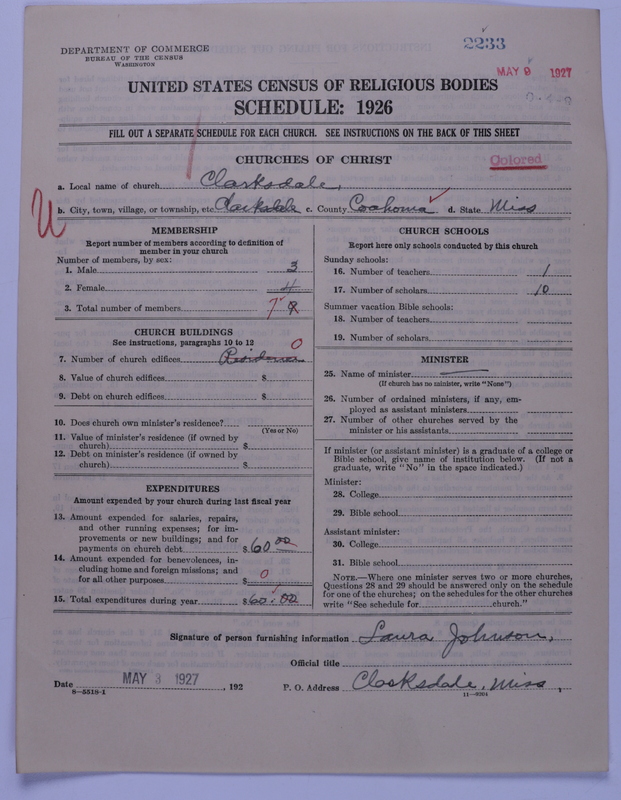 DEPARTMENT OF COMMERCE
BUREAU OF THE CENSUS
WASHINGTON
2233
MAY 9 1927
UNITED STATES CENSUS OF RELIGIOUS BODIES
SCHEDULE: 1926
FILL OUT A SEPARATE SCHEDULE FOR EACH CHURCH. SEE INSTRUCTIONS ON THE BACK OF THIS SHEET
CHURCHES OF CHRIST
Colored
a. Local name of church Clarksdale,
b. City, town, village, or township, etc. Clarksdale c. County Coahoma d. State Miss
U
MEMBERSHIP
Report number of members according to definition of
member in your church
Number of members, by sex:
1. Male 3
2. Female 4
3. Total number of members 7
CHURCH BUILDINGS
See instructions, paragraphs 10 to 12
7. Number of church edifices Residence 0
8. Value of church edifices $
9. Debt on church edifices $
10. Does church own minister's residence?
(Yes or No)
11. Value of minister's residence (if owned by
church) $
12. Debt on minister's residence (if owned by
church) $
EXPENDITURES
Amount expended by your church during last fiscal year
13. Amount expended for salaries, repairs,
and other running expenses; for im-
provements or new buildings; and for
payments on church debt $ 60 00
14. Amount expended for benevolences, in-
cluding home and foreign missions; and
for all other purposes $ 0
15. Total expenditures during year $ 60.00
CHURCH SCHOOLS
Report here only schools conducted by this church
Sunday schools:
16. Number of teachers 1
17. Number of scholars 10
Summer vacation Bible schools:
18. Number of teachers
19. Number of scholars
MINISTER
25. Name of minister
(If church has no minister, write "None")
26. Number of ordained ministers, if any, em-
ployed as assistant ministers
27. Number of other churches served by the
minister or his assistants
If minister (or assistant minister) is a graduate of a college or
Bible school, give name of institution below. (If not a
graduate, write "No" in the space indicated.)
Minister:
28. College
29. Bible school
Assistant minister:
30. College
31. Bible school
NOTE.—Where one minister serves two or more churches,
Questions 28 and 29 should be answered only on the schedule
for one of the churches; on the schedules for the other churches
write "See schedule for church."
Signature of person furnishing information Laura Johnson,
Official title
Date MAY 3 1927, 192
P. O. Address Clarksdale, Miss,
8—5518-1
11—9204